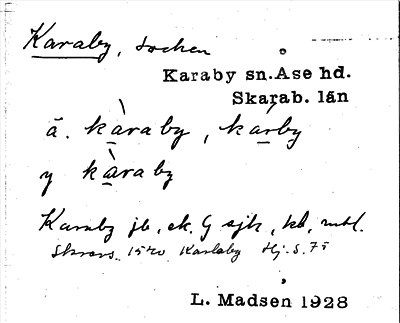 Karaby, socken
Karaby sn. Åse hd.
Skarab. län
ä. kàraby, kàrby
y kàraby
Karaby jb, ek. G sjk, kb, mtl.
1540 Karlaby Hj. S. 75
L. Madsen 1928